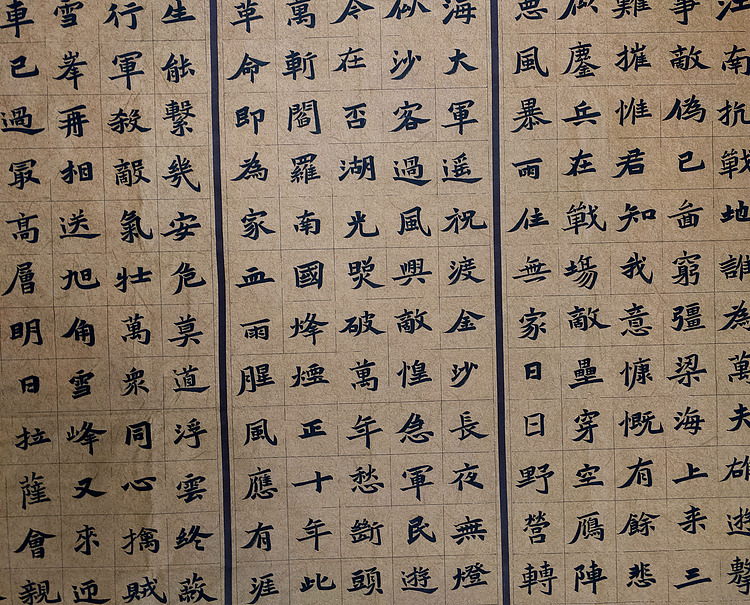 江南抗戰地誰為萬夫雄遊擊
爭敵偽已啚窮彊梁海上来三
難摧惟君知我意慷慨有餘悲
似鏖兵在戰場敵壘穿空鴈陣
思風暴雨住無家日日野營轉
海大軍遥祝渡金沙長夜無燈
似沙客過風興敵惶急軍民遊
今在否湖光破萬年愁斷頭
萬斬閻羅南國烽煙正十年此
革命即為家血雨腥風應有涯
生能繫幾安危莫道浮雲終蔽
行軍殺敵氣壯萬衆同心擒賊
雪峯再相送旭角雪峰又來迎
車已過最高層明日拉薩會親